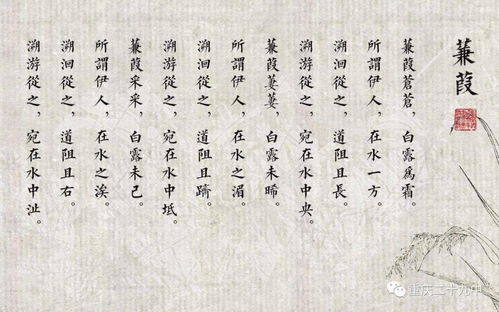 蒹葭
蒹葭蒼蒼，白露爲霜。
所謂伊人，在水一方。
溯洄從之，道阻且長。
溯游從之，宛在水中央。
蒹葭萋萋，白露未晞。
所謂伊人，在水之湄。
溯洄從之，道阻且躋。
溯游從之，宛在水中坻。
蒹葭采采，白露未已。
所謂伊人，在水之涘。
溯洄從之，道阻且右。
溯游從之，宛在水中沚。
重庆二十九中